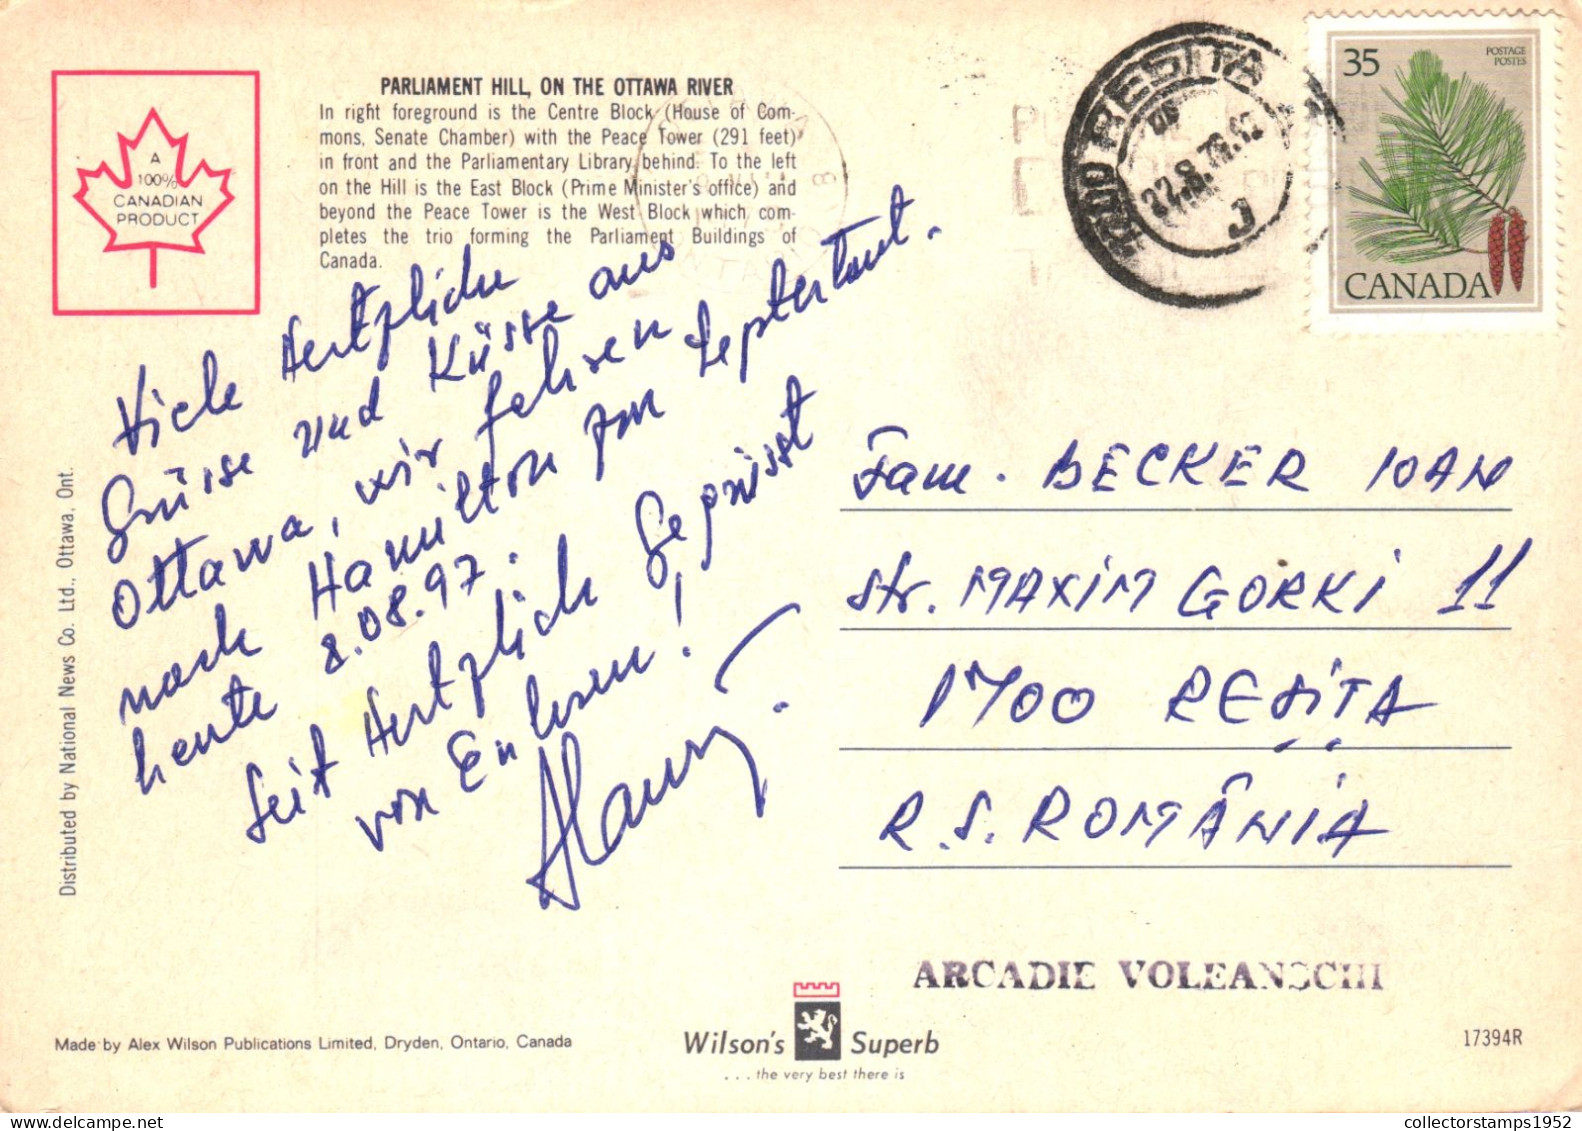 A
100%
CANADIAN
PRODUCT
PARLIAMENT HILL, ON THE OTTAWA RIVER
In right foreground is the Centre Block (House of Com-
mons, Senate Chamber) with the Peace Tower (291 feet)
in front and the Parliamentary Library behind. To the left
on the Hill is the East Block (Prime Minister's office) and
beyond the Peace Tower is the West Block which com-
pletes the trio forming the Parliament Buildings of
Canada.
Viele Hertzliche
Grüsse und Küsse aus
Ottawa, wir fahren
nach Hamilton zum
heute 8.08.97.
Seit Hertzlich Gegrüsst
von
Distributed by National News Co. Ltd., Ottawa, Ont.
1700 RESITA
35
POSTAGE
POSTES
CANADA
Fam. BECKER IOAN
Str. MAXIM GORKI 11
1700 REŞIŢA
R.S. ROMÂNIA
ARCADIE VOLEANSCHI
Made by Alex Wilson Publications Limited, Dryden, Ontario, Canada
Wilson's Superb
...the very best there is
17394R
collectorstamps1952